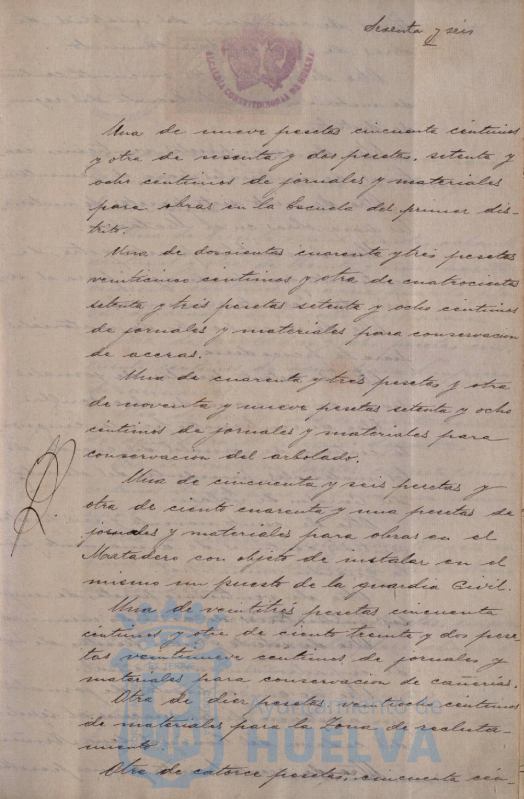 Sesenta y seis
ALCALDIA CONSTITUCIONAL DE HUELVA
Una de nueve pesetas cincuenta céntimos
y otra de sesenta y dos pesetas, setenta y
ocho céntimos de jornales y materiales
para obras en la Escuela del primer dis-
trito.
Una de doscientas cuarenta y tres pesetas
veinticinco céntimos y otra de cuatrocientas
setenta y tres pesetas setenta y ocho céntimos
de jornales y materiales para conservacion
de aceras.
Una de cuarenta y tres pesetas y otra
de noventa y nueve pesetas setenta y ocho
céntimos de jornales y materiales para
conservación del arbolado.
Una de cincuenta y seis pesetas y
otra de ciento cuarenta y una pesetas de
jornales y materiales para obras en el
Matadero con objeto de instalar en el
mismo un puesto de la guardia Civil.
Una de veintitrés pesetas cincuenta
céntimos y otra de ciento treinta y dos pese-
tas veintinueve céntimos de jornales y
materiales para conservacion de cañerías.
Otra de diez pesetas veintiocho céntimos
de materiales para la Zona de recluta-
miento.
Otra de catorce pesetas, cincuenta cén-
Ayuntamiento de
HUELVA